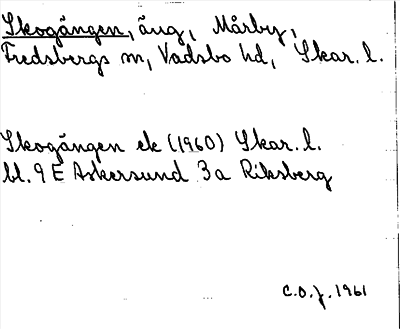 Skogängen, äng, Mårby,
Fredsbergs sn, Vadsbo hd, Skar. l.
Skogängen ek (1960) Skar. l.
bl. 9 E Askersund 3a Riksberg
C.O.J. 1961